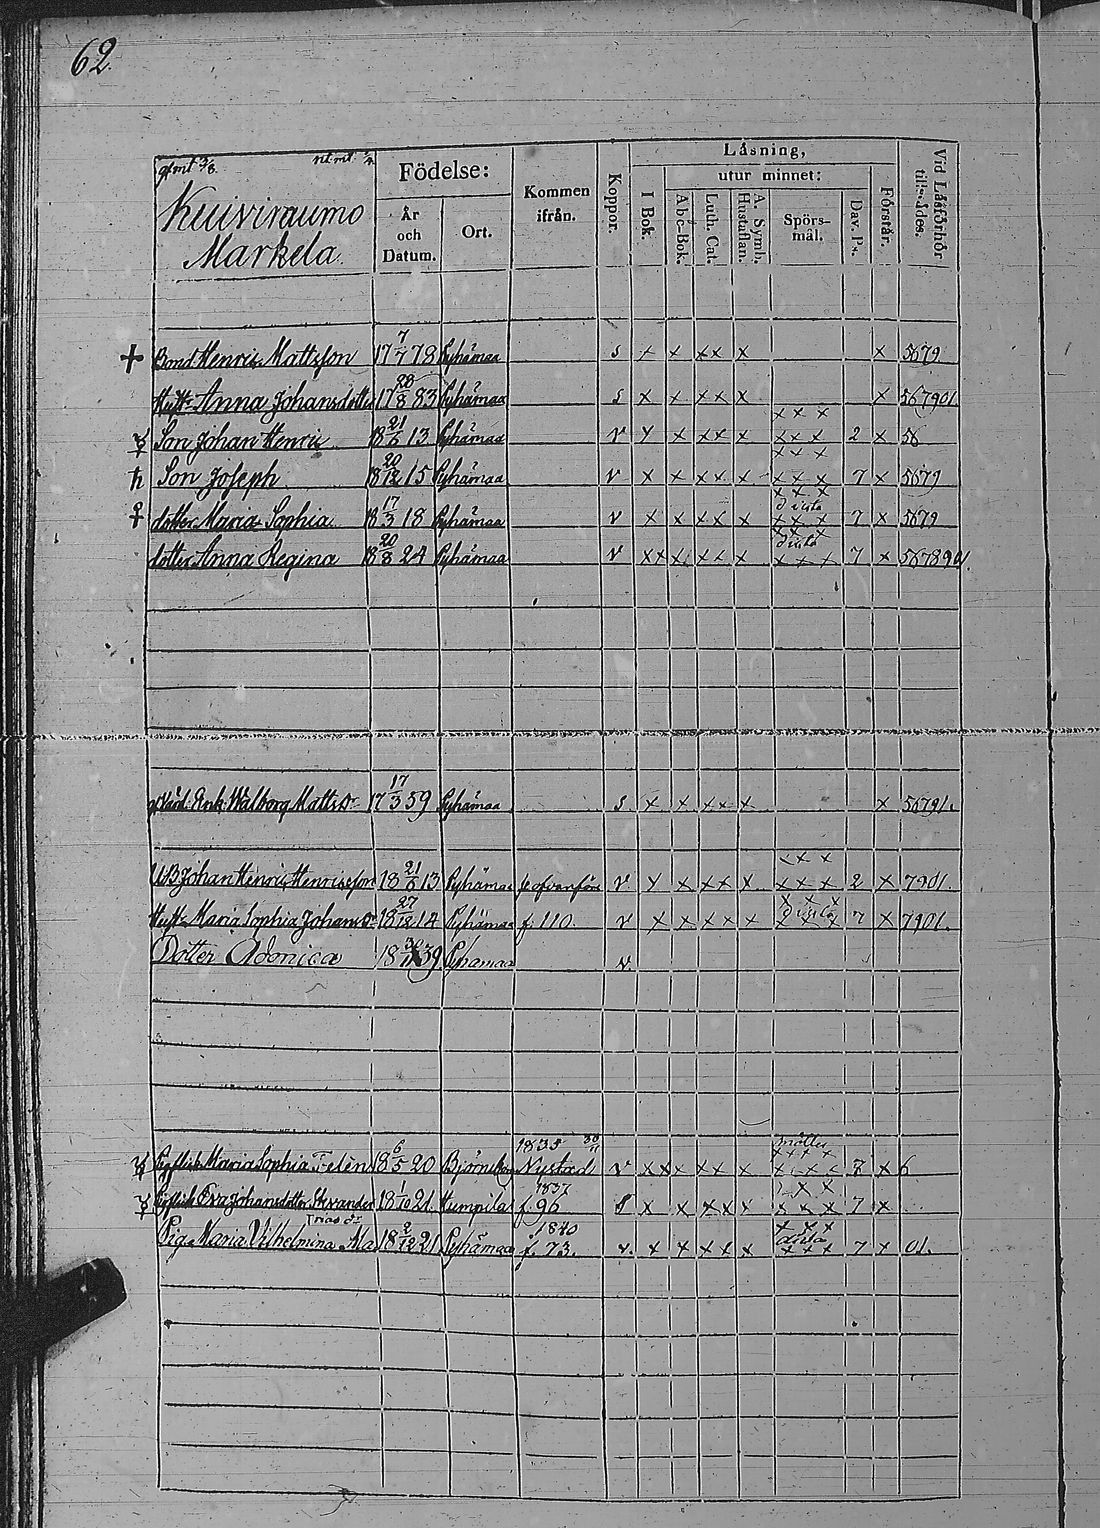 62.
Kuiviraumo
Markela.
Födelse:
År
och
Datum.
Ort.
Kommen
ifrån.
Koppor.
Läsning,
I Bok.
utur minnet:
Abc-Bok.
Luth. Cat.
A. Symb.
Hustaflan.
Spörs-
mål.
Dav. Ps.
Förstår.
Vid Läsförhör
Bond Henric Mattsson 17 7/7 78 Pyhämaa s x x xx x x 5679.
Hust. Anna Johansdotter 17 28/8 83 Pyhämaa s x x xx x x 567901
x x x
Son Johan Henric 18 21/6 13 Pyhämaa v x x xx x xxx 2 x 56
x x x
Son Joseph 18 20/12 15 Pyhämaa v x x xx x xxx 7 x 5679
x x x
dotter Maria Sophia 18 17/3 18 Pyhämaa v x x xx x xxx 7 x 5679
dotter Anna Regina 18 20/8 24 Pyhämaa v xx x xx x xxx 7 x 5678901.
Enk. Walborg Matts dr 17 17/3 59 Pyhämaa s x x xx x x 56791.
x x x
Johan Henric Henricsson 18 21/6 13 Pyhämaa se ofvanföre v x x xx x xxx 2 x 7901.
x x x
Hust. Maria Sophia Johans dr 18 27/12 14 Pyhämaa f. 110. v x x xx x xxx 7 x 7901.
Dotter Adonica 18 39 Pyhämaa v.
1835 30/11
Maria Sophia Felén 18 6/5 20 Björneborg Nystad v xx x xx x xxxx 7 x 6
1837
Eva Johansdotter Stexander 18 1/10 21 Humpila f. 96 s x x xxx x 7 x
1840
Pig. Maria Vilhelmina 18 2/12 21 Pyhämaa f. 73. v. x x xx x xxx 7 x 01.